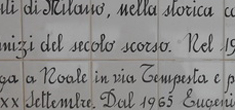 di Milano, nella storica
inizi del secolo scorso. Nel 19
a Noale in via Tempesta e p
xx Settembre. Dal 1965 Eugeni